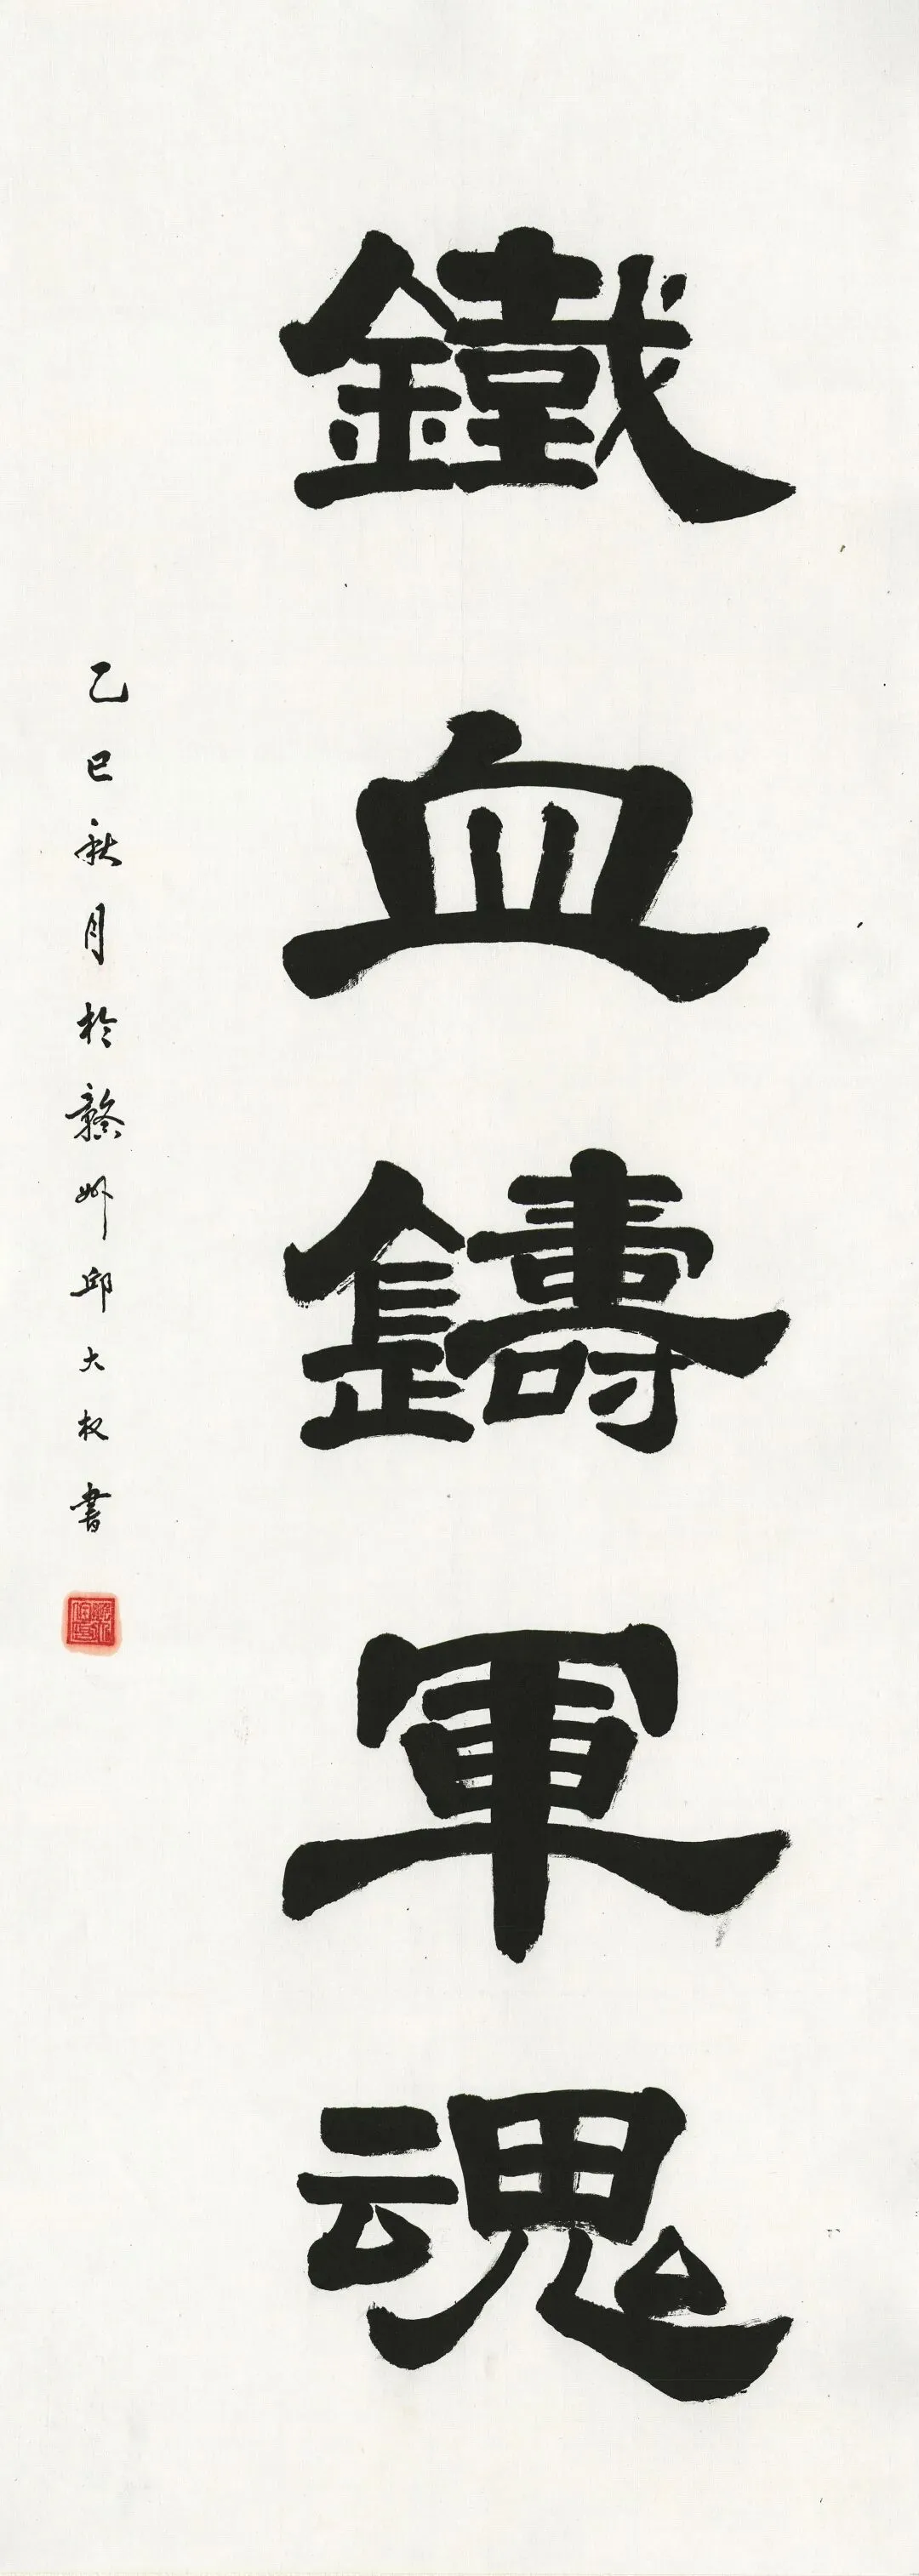 鐵血鑄軍魂
乙巳秋月於赣州邱大权書